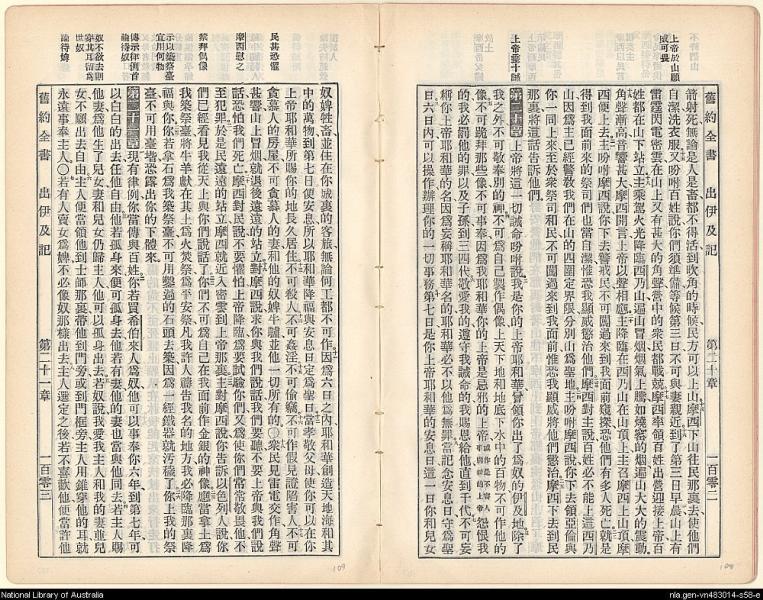 上帝於山顯威可畏
箭射死無論是人是畜都不得活到吹角的時候民方可以上山摩西下山往民那裏去使他們
自潔洗衣服又吩咐百姓說你們須準備等候第三日不可與妻親近到了第三日早晨山上有
雷霆閃電密雲在山上又有甚大的角聲營中的衆民都戰兢摩西率領百姓出營迎接上帝百
姓都在山下站立主乘駕火光降臨西乃山遍山冒烟烟氣上騰如燒窰的烟遍山大大的震動
角聲漸高音響甚大摩西開言上帝以聲相應主降臨在西乃山在山頂上主召摩西上山頂摩
西便上去主吩咐摩西說你下去警戒民不可闖過來到我面前窺探恐怕他們有多人死亡就是
得到我面前來的祭司們也當自潔惟恐我顯威懲治他們摩西對主說百姓必不能上這西乃
山因爲主已經警教我們在山的四圍定界限分別山爲聖地主吩咐摩西說你下去領亞倫與
你一同上來至於衆祭司和民不可闖過來到我面前惟恐我顯威將他們懲治摩西下去到民
那裏將這話告訴他們
上帝垂十誡
第二十章上帝將這一切誡命吩咐說我是你的上帝耶和華曾領你出了爲奴的伊及地除了
我之外不可敬奉別的神不可爲自己製作偶像上天下地和地底下水中的百物不可作他的
像不可跪拜那些像不可事奉因爲我耶和華你的上帝是忌邪的上帝怨恨我
的我必罰他的罪以及子孫到三四代敬愛我的遵守我誡命的我賜恩給他直到千代不可妄
稱你上帝耶和華的名因爲妄稱耶和華名的耶和華必不以他爲無罪當記念安息日守爲聖
日六日內可以操作辦理你的一切事務第七日是你上帝耶和華的安息日這一日你和兒女
舊約全書 出伊及記 第二十章 一百零二
奴婢牲畜並住在你城裏的客旅無論何工都不可作因爲六日之內耶和華創造天地海和其
中的萬物到第七日便安息所以耶和華降福與安息日定爲聖日當孝敬父母使你可以在你
上帝耶和華所賜你的地長久居住不可殺人不可姦淫不可偷竊不可作假見證陷害人不可
民甚恐懼
貪慕人的房屋不可貪慕人的妻和他的奴婢牛驢並他一切所有的○衆民見雷電交作角聲
甚響山上冒烟就退後遠遠的站立對摩西說求你與我們說話我們要聽不要上帝與我們說
摩西慰之
話恐怕我們死亡摩西對民說不要懼怕上帝降臨爲要試驗你們又爲使你們常常敬畏他不
至犯罪於是民遠遠的站立摩西就近入密雲到上帝那裏主對摩西說你告訴以色列人說你
禁拜偶像
們已經看見我從天上與你們說話了你們不可爲自己在我面前作金銀的神像應當拿土爲
示以築祭臺宜用何物
我築祭臺將牛羊獻在其上爲火焚祭爲平安祭凡我許人禱告我名的地方我必降臨那裏降
福與你你若拿石爲我築祭臺不可用鑿過的石頭去築因爲一經鐵器就污穢了你上我的祭
臺不可用臺堦恐露出你的下體來
傳示律例首論待奴
第二十一章現有律例你當傳與百姓你若買希伯來人爲奴他可以事奉你六年到第七年可
以白白的出去任他自由他若孤身來便可孤身去他若有妻他的妻也當與他同去若主人賜
他妻爲他生了兒女妻和兒女仍歸主人他可以孤身出去若奴說我愛我主人和我的妻並兒
奴不欲去則穿其耳留爲世奴
女不願出去自由主人便當領他到士師那裏帶他到門旁或到門框旁主人用錐穿他的耳就
論待婢
永遠事奉主人○若有人賣女爲婢不必像奴那樣出去主人選定之後若不喜歡他便當許他
舊約全書 出伊及記 第二十一章 一百零三
109
108
National Library of Australia
nla.gen-vn483014-s58-e